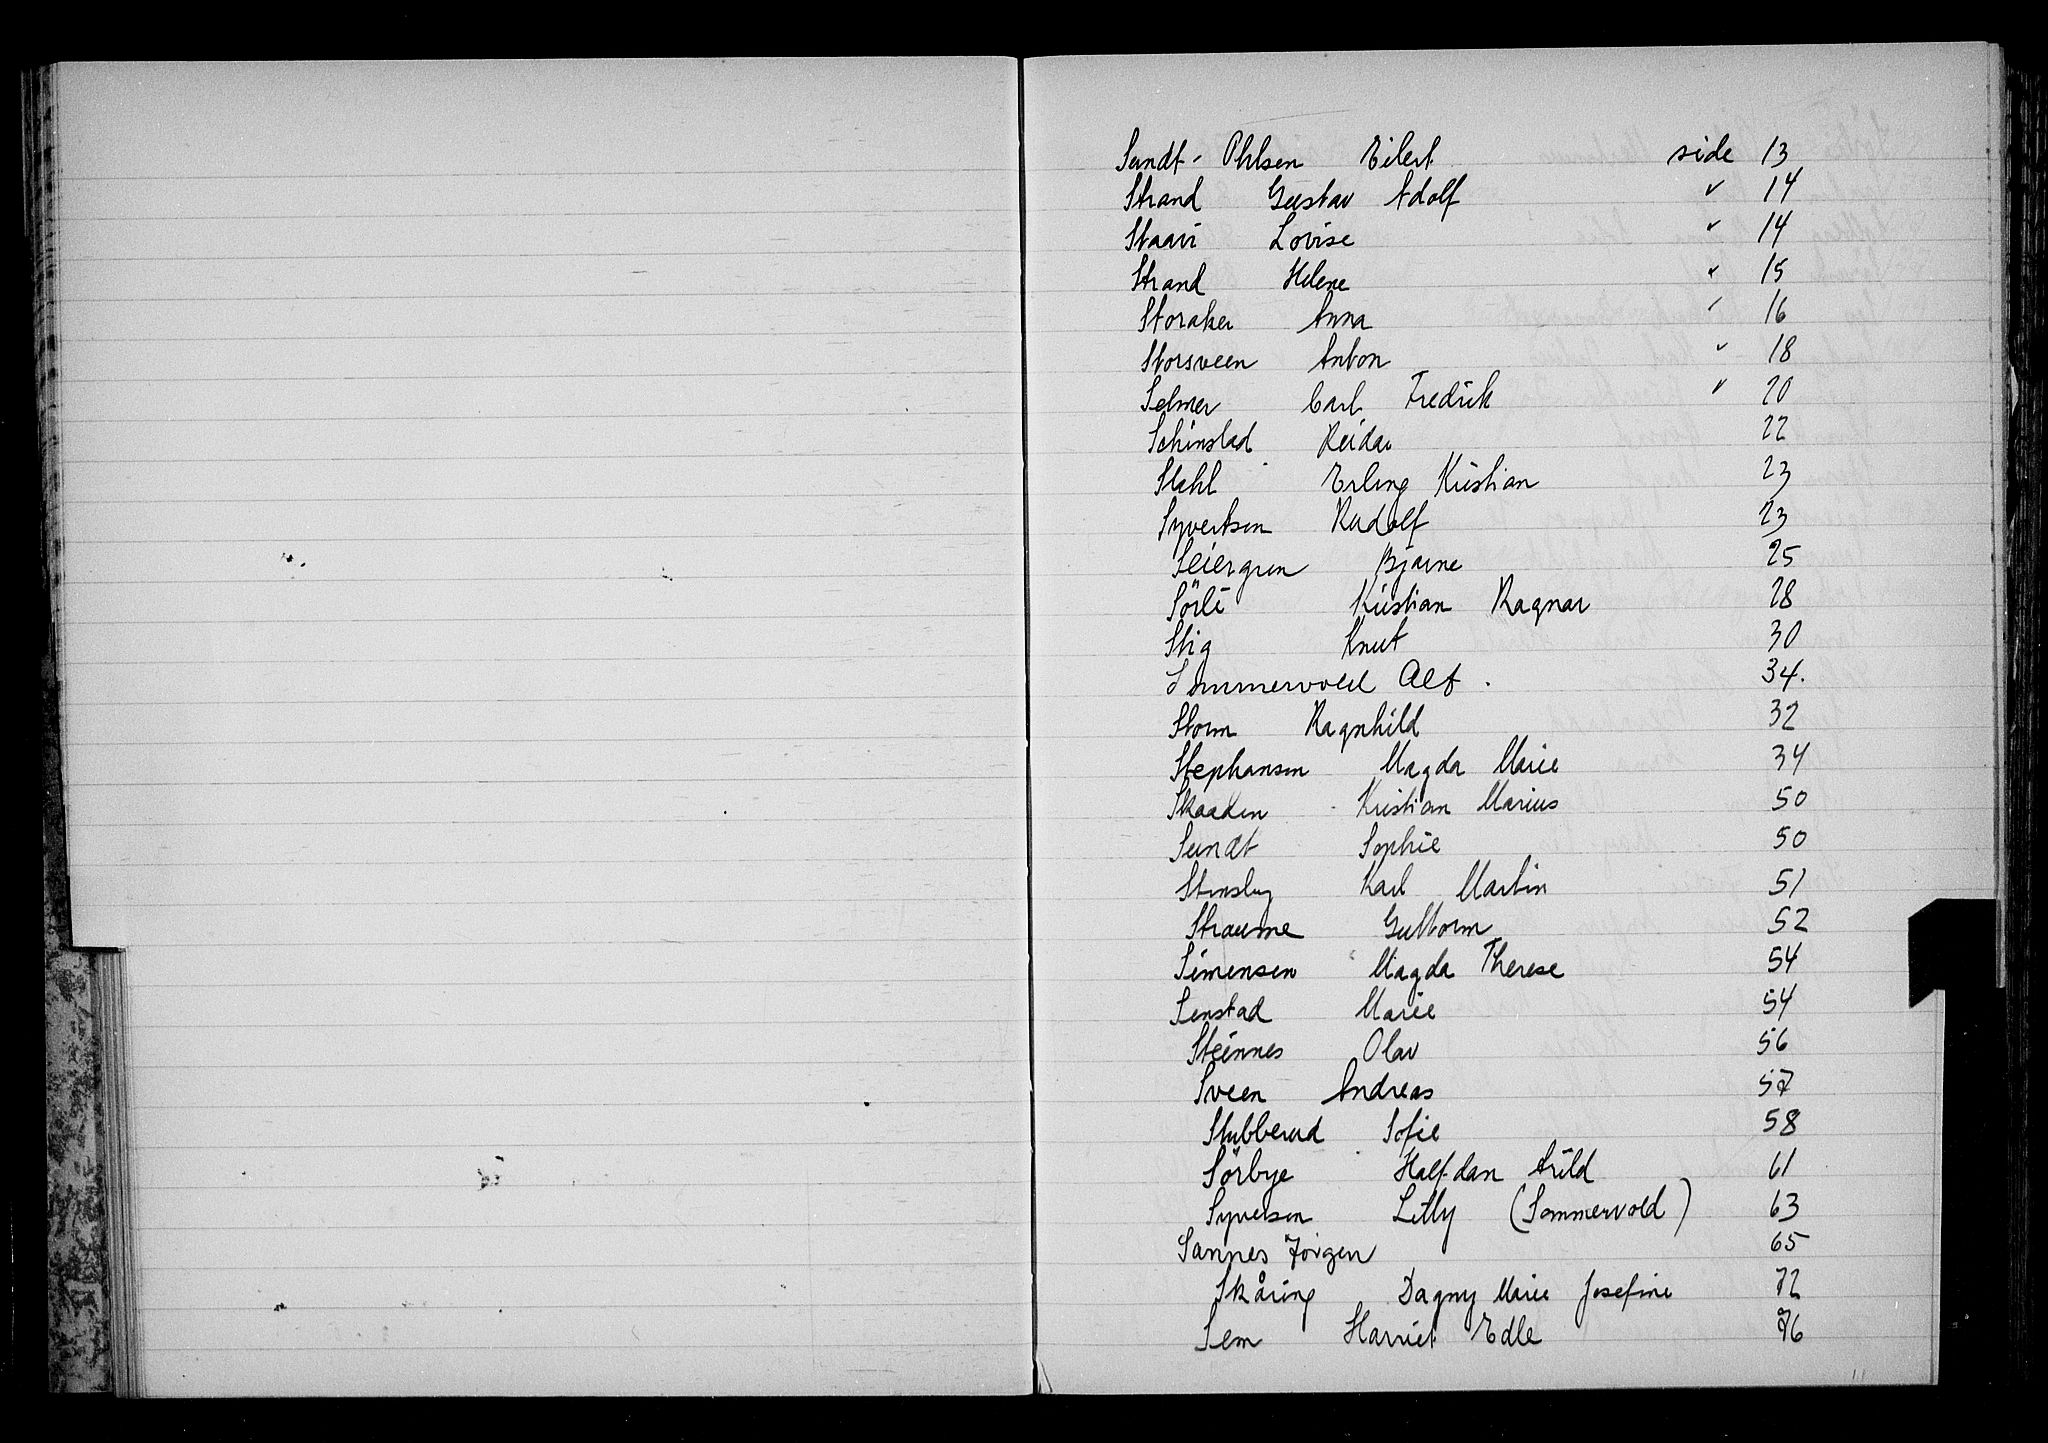 Sundt- Ohlsen Eilert side 13
Strand Gustav Adolf " 14
Staavi Lovise " 14
Strand Helene " 15
Storaker Anna " 16
Storsveen Anton " 18
Selmer Carl Fredrik " 20
Schinstad Reidar 22
Stahl Erling Kristian 23
Syvertsen Rudolf 23
Seiergren Bjarne 25
Sörli Kristian Ragnar 28
Stig Knut 30
Sommervold Alf. 34.
Storm Ragnhild 32
Stephansen Magda Marie 34
Skaaden Kristian Marius 50
Sundt Sophie 50
Stensby Karl Martin 51
Straume Guttorm 52
Simensen Magda Therese 54
Senstad Marie 54
Steinnes Olav 56
Sveen Andreas 57
Stubberud Sofie 58
Sörbye Halfdan Arild 61
Syversen Lilly (Sommervold) 63
Sannes Jörgen 65
Skåring Dagny Marie Josefine 72
Sem Harriet Edle 76